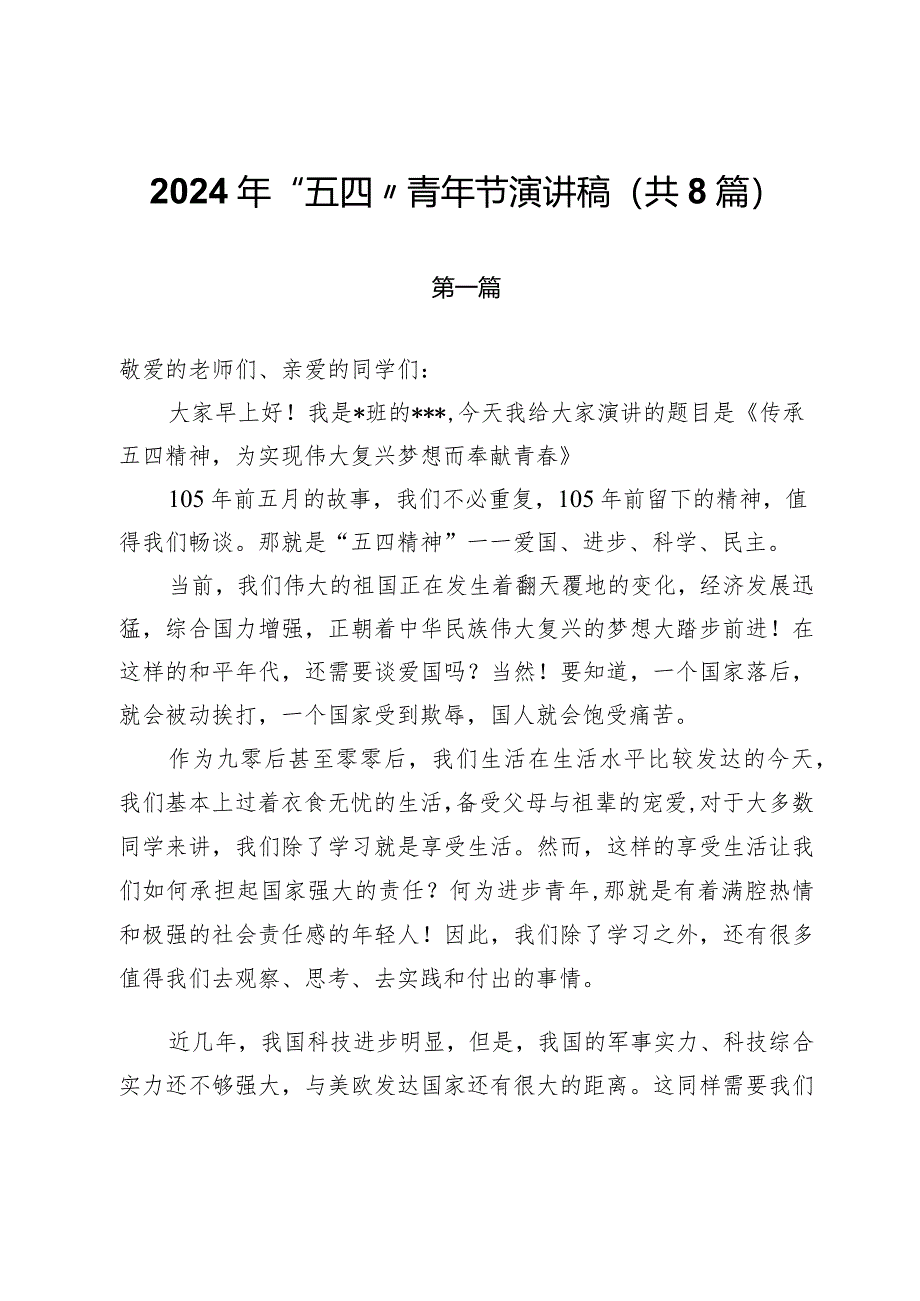 2024 年 “五四〃青年节演讲稿（共 8 篇）
第一篇
敬爱的老师们、亲爱的同学们：
大家早上好！我是*班的***,今天我给大家演讲的题目是《传承
五四精神，为实现伟大复兴梦想而奉献青春》
105 年前五月的故事，我们不必重复，105 年前留下的精神，值
得我们畅谈。那就是“五四精神”一一爱国、进步、科学、民主。
当前，我们伟大的祖国正在发生着翻天覆地的变化，经济发展迅
猛，综合国力增强，正朝着中华民族伟大复兴的梦想大踏步前进！在
这样的和平年代，还需要谈爱国吗？当然！要知道，一个国家落后，
就会被动挨打，一个国家受到欺辱，国人就会饱受痛苦。
作为九零后甚至零零后，我们生活在生活水平比较发达的今天，
我们基本上过着衣食无忧的生活，备受父母与祖辈的宠爱,对于大多数
同学来讲，我们除了学习就是享受生活。然而，这样的享受生活让我
们如何承担起国家强大的责任？何为进步青年,那就是有着满腔热情
和极强的社会责任感的年轻人！因此，我们除了学习之外，还有很多
值得我们去观察、思考、去实践和付出的事情。
近几年，我国科技进步明显，但是，我国的军事实力、科技综合
实力还不够强大，与美欧发达国家还有很大的距离。这同样需要我们